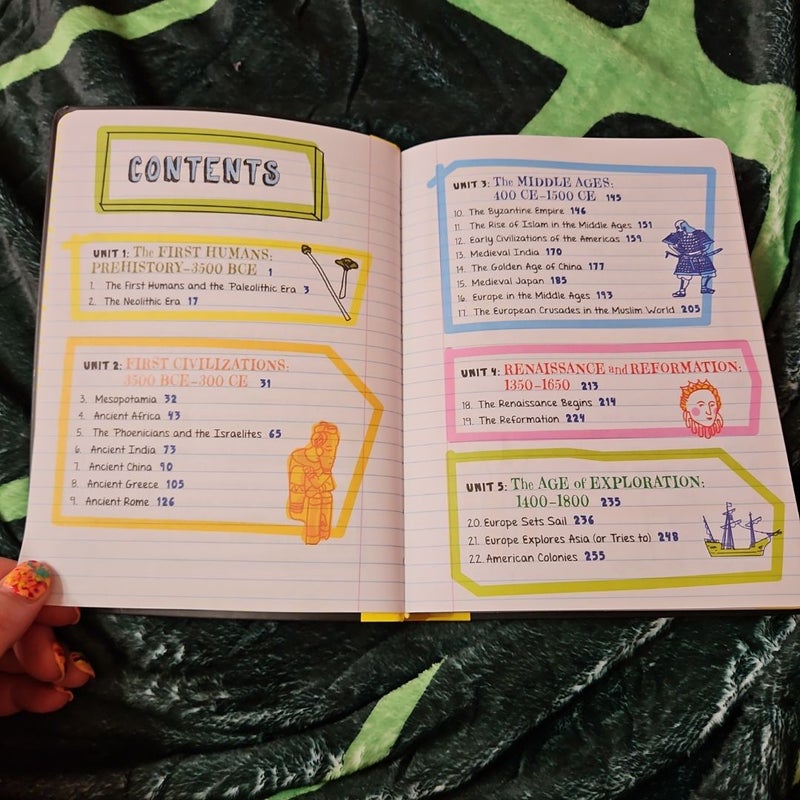 CONTENTS
UNIT 1: The FIRST HUMANS:
PREHISTORY–3500 BCE 1
1. The First Humans and the Paleolithic Era 3
2. The Neolithic Era 17
UNIT 2: FIRST CIVILIZATIONS:
3500 BCE–300 CE 31
3. Mesopotamia 32
4. Ancient Africa 43
5. The Phoenicians and the Israelites 65
6. Ancient India 73
7. Ancient China 90
8. Ancient Greece 105
9. Ancient Rome 126
UNIT 3: The MIDDLE AGES:
400 CE–1500 CE 145
10. The Byzantine Empire 146
11. The Rise of Islam in the Middle Ages 151
12. Early Civilizations of the Americas 159
13. Medieval India 170
14. The Golden Age of China 177
15. Medieval Japan 185
16. Europe in the Middle Ages 193
17. The European Crusades in the Muslim World 205
UNIT 4: RENAISSANCE and REFORMATION:
1350–1650 213
18. The Renaissance Begins 214
19. The Reformation 224
UNIT 5: The AGE of EXPLORATION:
1400–1800 235
20. Europe Sets Sail 236
21. Europe Explores Asia (or Tries to) 248
22. American Colonies 255